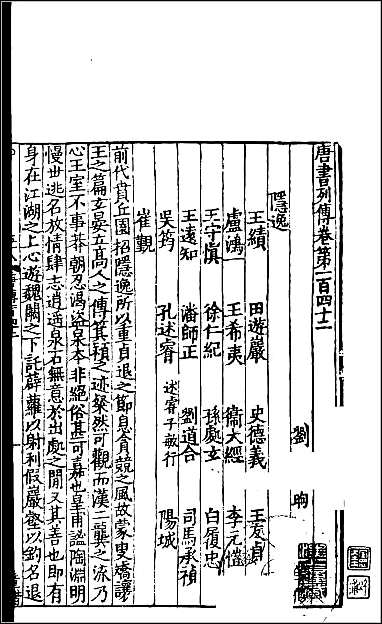 唐書列傳卷第一百四十二
劉昫
隱逸
王績 田遊巖 史德義 王友貞
盧鴻一 王希夷 衞大經 李元愷
王守慎 徐仁紀 孫處玄 白履忠
王遠知 潘師正 劉道合 司馬承禎
吳筠 孔述睿 述睿子敏行 陽城
崔覲
前代賁丘園招隱逸所以重貞退之節息貪競之風故蒙叟矯讓
王之篇玄晏立高人之傳箕潁之迹粲然可觀而漢二龔之流乃
心王室不事莽朝忍渴盜泉本非絕俗甚可嘉也皇甫謐陶淵明
慢世逃名放情肆志逍遥泉石無意於出處之閒又其善也即有
身在江湖之上心遊魏闕之下託薜蘿以射利假巖壑以釣名退